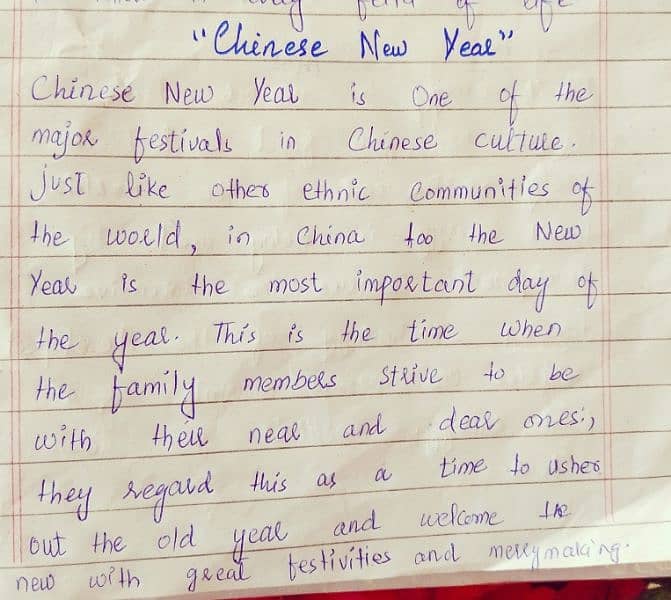 "Chinese New Year"
Chinese New Year is One of the
major festivals in Chinese culture.
just like other ethnic Communities of
the world, in China too the New
Year is the most important day of
the year. This is the time when
the family members strive to be
with their near and dear ones;,
they regard this as a time to usher
out the old year and welcome the
new with great festivities and merrymaking.